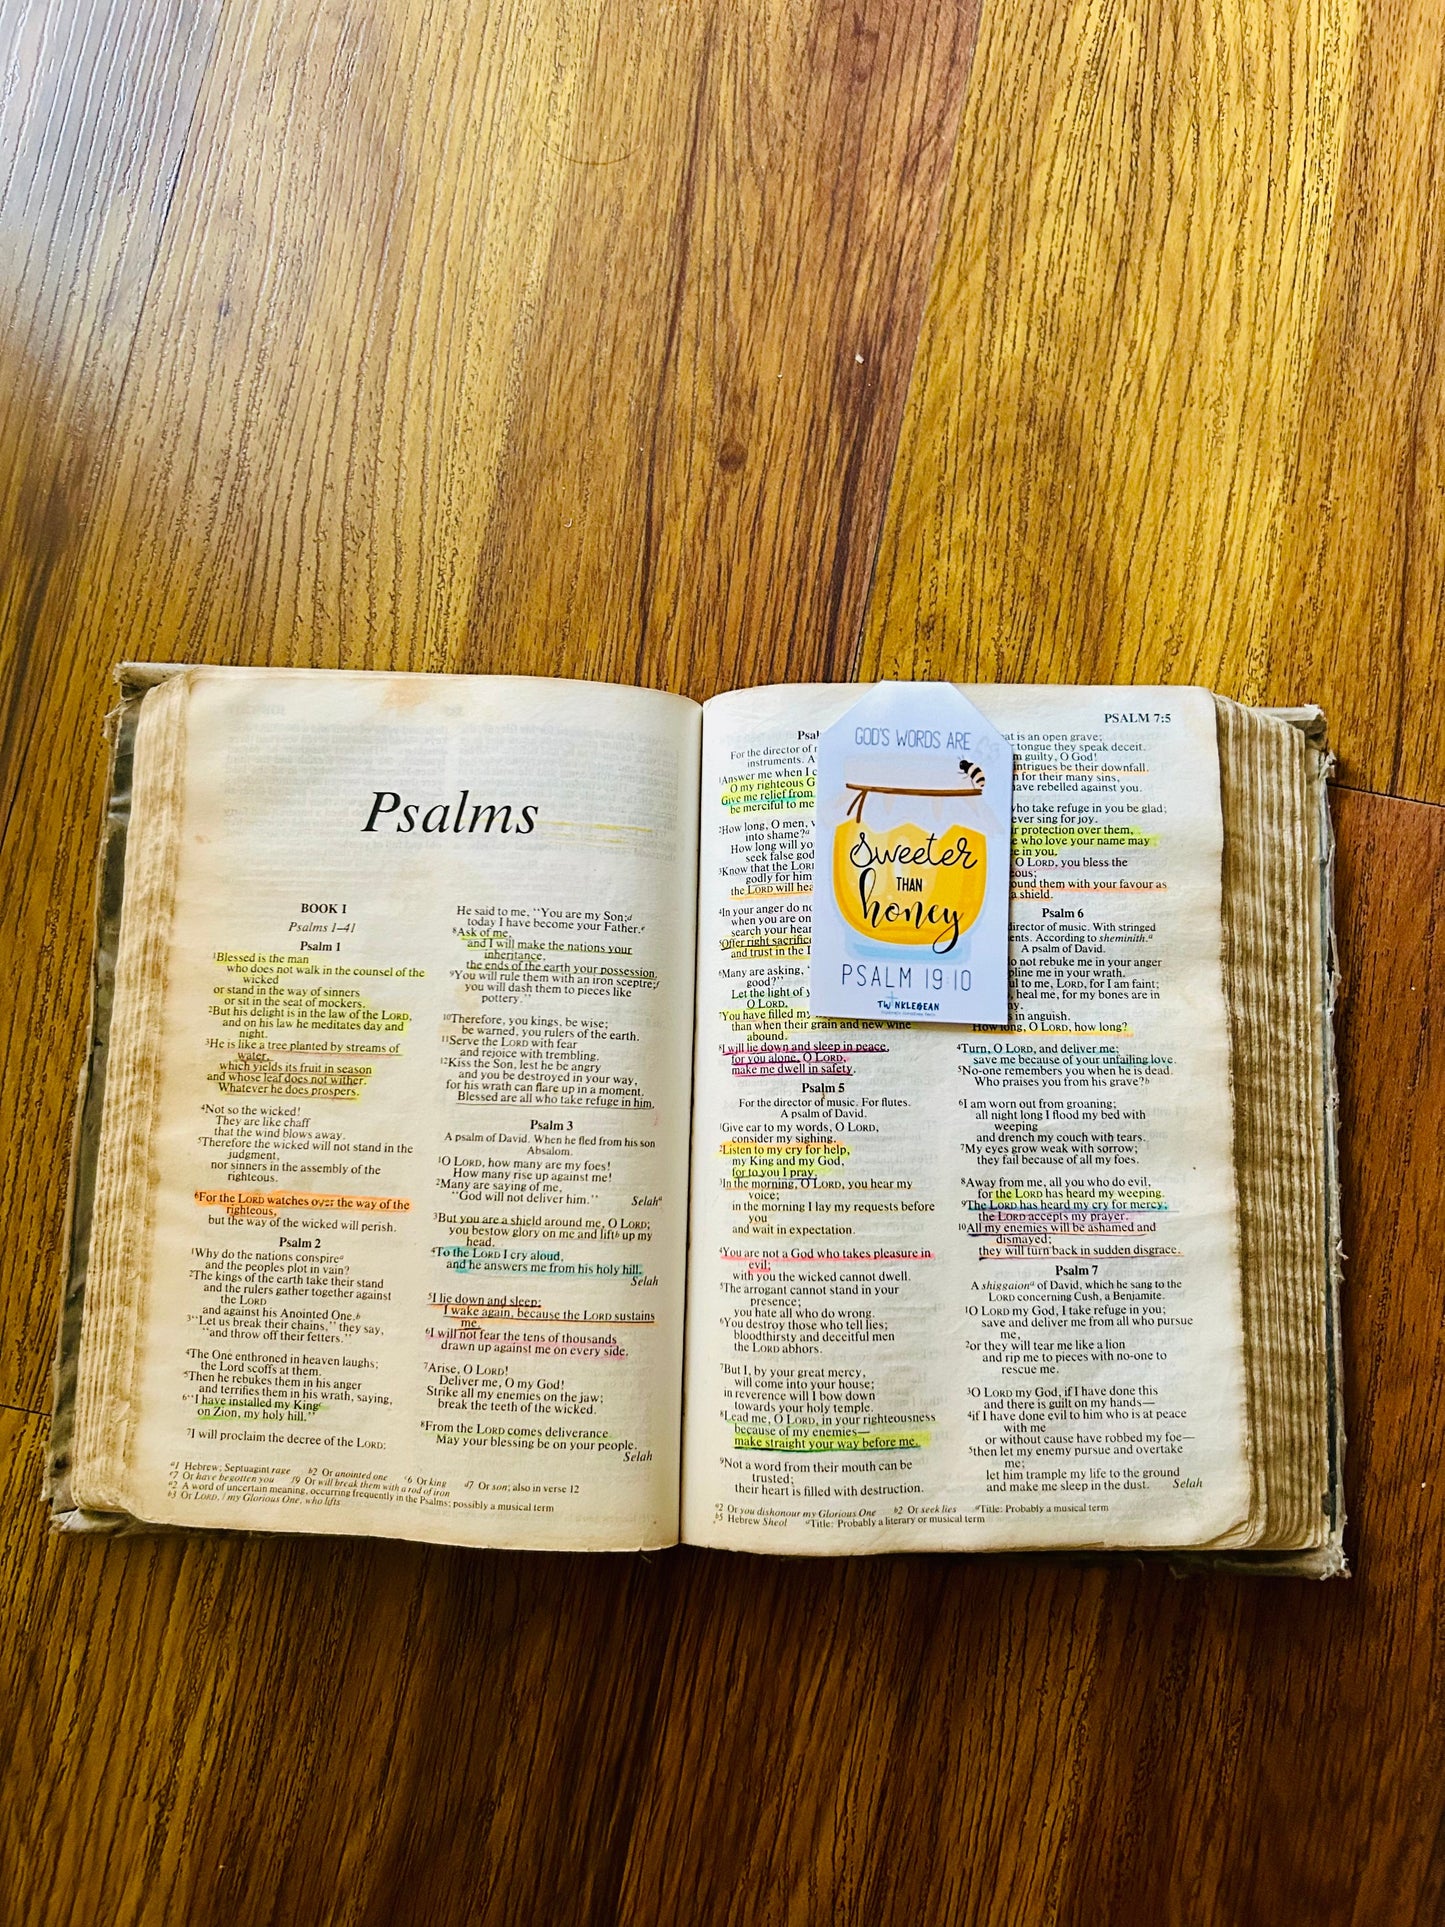 Psalms
BOOK I
Psalms 1–41
Psalm 1
1Blessed is the man
who does not walk in the counsel of the
wicked
or stand in the way of sinners
or sit in the seat of mockers.
2But his delight is in the law of the LORD,
and on his law he meditates day and
night.
3He is like a tree planted by streams of
water,
which yields its fruit in season
and whose leaf does not wither.
Whatever he does prospers.
4Not so the wicked!
They are like chaff
that the wind blows away.
5Therefore the wicked will not stand in the
judgment,
nor sinners in the assembly of the
righteous.
6For the LORD watches over the way of the
righteous,
but the way of the wicked will perish.
Psalm 2
1Why do the nations conspire a
and the peoples plot in vain?
2The kings of the earth take their stand
and the rulers gather together against
the LORD
and against his Anointed One. b
3“Let us break their chains,” they say,
“and throw off their fetters.”
4The One enthroned in heaven laughs;
the Lord scoffs at them.
5Then he rebukes them in his anger
and terrifies them in his wrath, saying,
6“I have installed my King c
on Zion, my holy hill.”
7I will proclaim the decree of the LORD:
He said to me, “You are my Son; d
today I have become your Father. e
8Ask of me,
and I will make the nations your
inheritance,
the ends of the earth your possession.
9You will rule them with an iron sceptre; f
you will dash them to pieces like
pottery.”
10Therefore, you kings, be wise;
be warned, you rulers of the earth.
11Serve the LORD with fear
and rejoice with trembling.
12Kiss the Son, lest he be angry
and you be destroyed in your way,
for his wrath can flare up in a moment.
Blessed are all who take refuge in him.
Psalm 3
A psalm of David. When he fled from his son
Absalom.
1O LORD, how many are my foes!
How many rise up against me!
2Many are saying of me,
“God will not deliver him.” Selah a
3But you are a shield around me, O LORD;
you bestow glory on me and lift b up my
head.
4To the LORD I cry aloud,
and he answers me from his holy hill.
Selah
5I lie down and sleep;
I wake again, because the LORD sustains
me.
6I will not fear the tens of thousands
drawn up against me on every side.
7Arise, O LORD!
Deliver me, O my God!
Strike all my enemies on the jaw;
break the teeth of the wicked.
8From the LORD comes deliverance.
May your blessing be on your people.
Selah
a1 Hebrew; Septuagint rage b2 Or anointed one c6 Or king d7 Or son; also in verse 12
e7 Or have begotten you f9 Or will break them with a rod of iron
a2 A word of uncertain meaning, occurring frequently in the Psalms; possibly a musical term
b3 Or LORD, / my Glorious One, who lifts
PSALM 7:5
For the director of
instruments. A
1Answer me when I
O my righteous
Give me relief from
be merciful to me
2How long, O men,
into shame? a
How long will
seek false
3Know that the
godly for him
the LORD will
4In your anger do
when you are on
search your
5Offer right
and trust in the
6Many are asking,
good?”
Let the light of
O LORD.
7You have filled my
than when their grain and new wine
abound.
8I will lie down and sleep in peace,
for you alone, O LORD,
make me dwell in safety.
Psalm 5
For the director of music. For flutes.
A psalm of David.
1Give ear to my words, O LORD,
consider my sighing.
2Listen to my cry for help,
my King and my God,
for to you I pray.
3In the morning, O LORD, you hear my
voice;
in the morning I lay my requests before
you
and wait in expectation.
4You are not a God who takes pleasure in
evil;
with you the wicked cannot dwell.
5The arrogant cannot stand in your
presence;
you hate all who do wrong.
6You destroy those who tell lies;
bloodthirsty and deceitful men
the LORD abhors.
7But I, by your great mercy,
will come into your house;
in reverence will I bow down
towards your holy temple.
8Lead me, O LORD, in your righteousness
because of my enemies—
make straight your way before me.
9Not a word from their mouth can be
trusted;
their heart is filled with destruction.
GOD'S WORDS ARE
sweeter
THAN
honey
PSALM 19:10
TWINKLEBEAN
is an open grave;
tongue they speak deceit.
guilty, O God!
intrigues be their downfall.
for their many sins,
have rebelled against you.
who take refuge in you be glad;
ever sing for joy.
protection over them,
who love your name may
in you.
O LORD, you bless the
them with your favour as
a shield.
Psalm 6
director of music. With stringed
According to sheminith. a
A psalm of David.
not rebuke me in your anger
me in your wrath.
to me, LORD, for I am faint;
heal me, for my bones are in
in anguish.
How long, O LORD, how long?
4Turn, O LORD, and deliver me;
save me because of your unfailing love.
5No-one remembers you when he is dead.
Who praises you from his grave? b
6I am worn out from groaning;
all night long I flood my bed with
weeping
and drench my couch with tears.
7My eyes grow weak with sorrow;
they fail because of all my foes.
8Away from me, all you who do evil,
for the LORD has heard my weeping.
9The LORD has heard my cry for mercy;
the LORD accepts my prayer.
10All my enemies will be ashamed and
dismayed;
they will turn back in sudden disgrace.
Psalm 7
A shiggaion a of David, which he sang to the
LORD concerning Cush, a Benjamite.
1O LORD my God, I take refuge in you;
save and deliver me from all who pursue
me,
2or they will tear me like a lion
and rip me to pieces with no-one to
rescue me.
3O LORD my God, if I have done this
and there is guilt on my hands—
4if I have done evil to him who is at peace
with me
or without cause have robbed my foe—
5then let my enemy pursue and overtake
me;
let him trample my life to the ground
and make me sleep in the dust. Selah
a2 Or you dishonour my Glorious One b2 Or seek lies a Title: Probably a musical term
b5 Hebrew Sheol a Title: Probably a literary or musical term